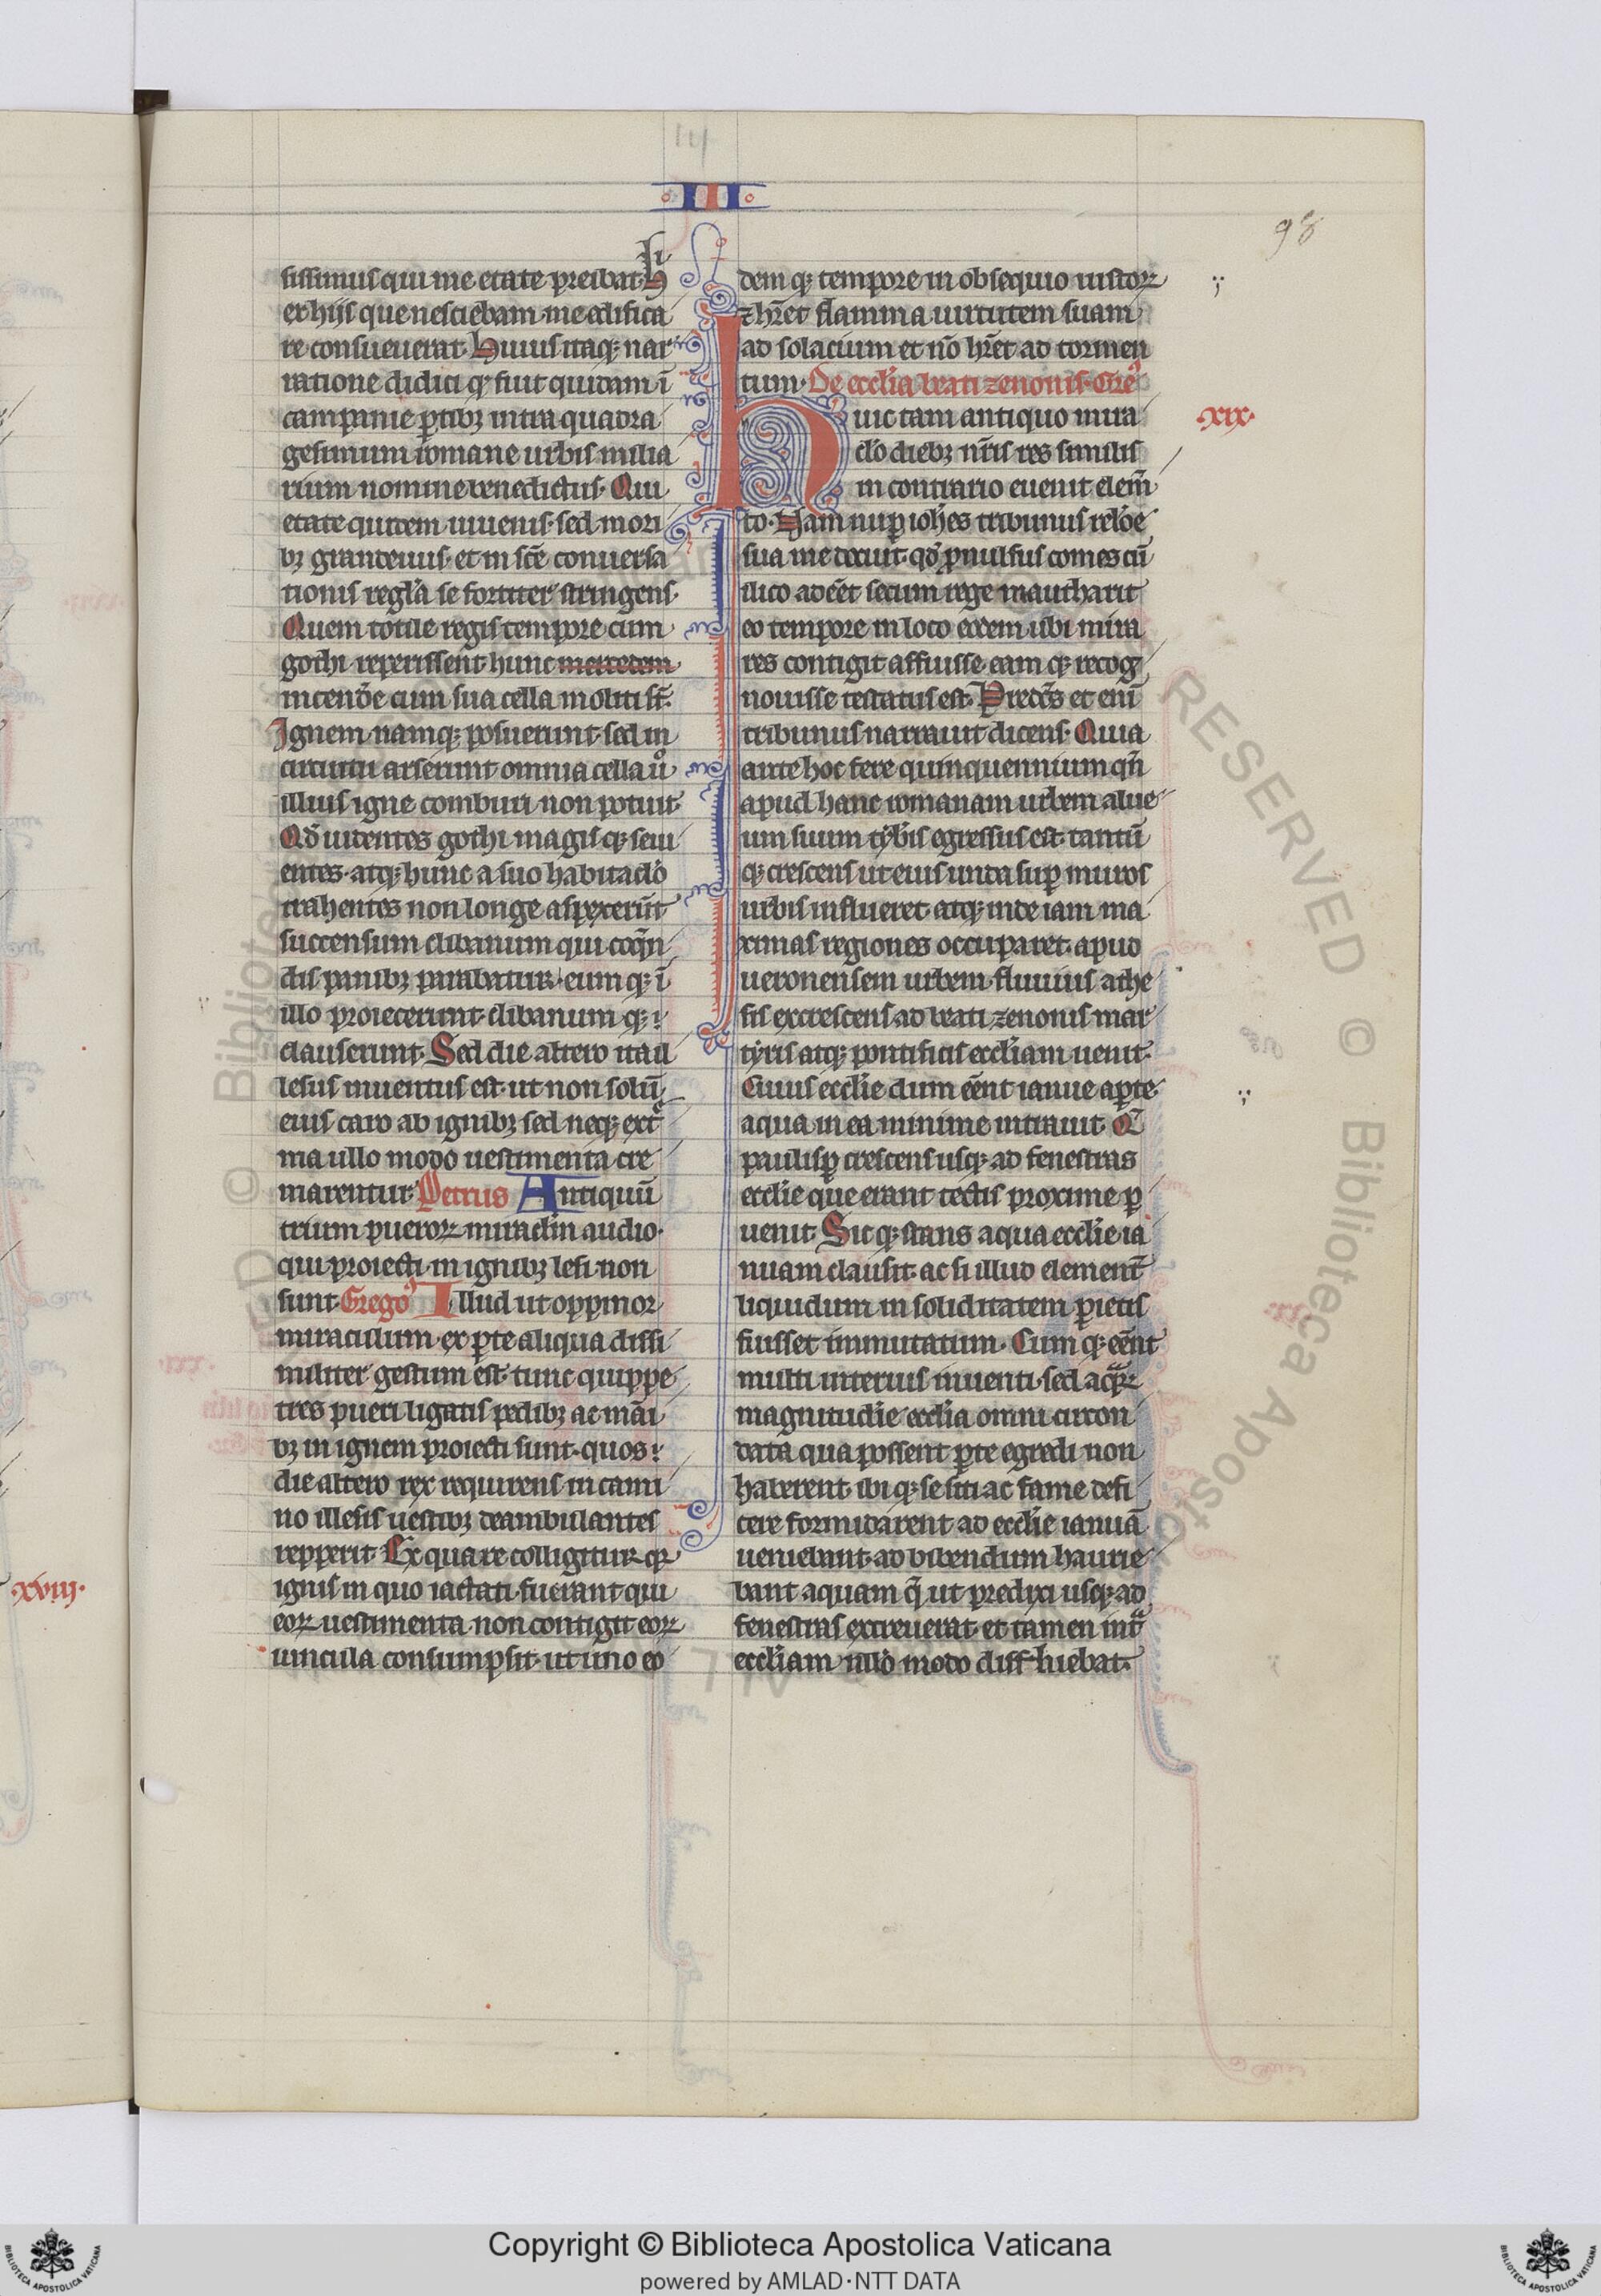 III
98
sissimus qui me etate preibat. h
ex hijs que nesciebam me edifica
re consueuerat. Huius itaqꝫ nar
ratione didici qꝫ fuit quidam ī
campanie ꝑtibꝫ intra quadra
gesimum romane urbis milia
rium nomine benedictus. Qui
etate quidem iuuenis. sed mori
bꝫ grandeuus. et in scē conuersa
tionis regła se fortiter stringens.
Quem totile regis tempore cum
gothi reperissent hunc mercedem
incendē cum sua cella moliti st̄.
Ignem namqꝫ posuerunt. sed in
circuitu arserunt omnia cella ū
illius igne comburi non potuit.
Qd̄ uidentes gothi magis qꝫ seui
entes. atqꝫ hunc a suo habitaclo
trahentes non longe aspexerūt
succensum clibanum qui coqn̄
dis panibꝫ parabatur. eum qꝫ ī
illo proiecerunt. clibanum qꝫ
clauserunt. Sed die altero ita il
lesus inuentus est. ut non solū
eius caro ab ignibꝫ sed neqꝫ ext̄
ma ullo modo uestimenta cre
marentur. Petrus Antiquū
trium pueroꝝ miraclm̄ audio.
qui proiecti in ignibꝫ lesi non
sunt. Grego Illud ut oppinor
miraculum ex ꝑte aliqua dissi
militer gestum est. tunc quippe
tres pueri ligatis pedibꝫ ac māi
bꝫ in ignem proiecti sunt. quos
die altero rex requirens in cami
no illesis uestibꝫ deambulantes
repperit. Ex qua re colligitur qꝫ
ignis in quo iactati fuerant qui
eoꝝ uestimenta non contigit eoꝝ
uincula consumpsit. ut uno eo
xviij.
dem qꝫ tempore in obsequio iustoꝝ
⁊ hr̄et flamma uirtutem suam
ad solacium et nō hr̄et ad tormen
tum. De ecclīa beati zenonis. Gre
xix.
huic tam antiquo mira
clo diebꝫ nr̄is res similis
in contrario euenit elem̄
to. Nam nuꝑ ioh̄es tribunus relōe
sua me docuit. qd̄ ꝓnulfus comes cū
illico adeēt secum rege mautharit
eo tempore in loco eodem ubi mira
res contigit affuisse eam qꝫ recog
nouisse testatus est. Predc̄s et enī
tribunus narrauit dicens. Quia
ante hoc fere quinquennium qn̄
apud hanc romanam urbem alue
um suum tybris egressus est. tantū
qꝫ crescens ut eius unda suꝑ muros
urbis influeret atqꝫ inde iam ma
ximas regiones occuparet. apud
ueronensem urbem. fluuius athe
sis excrescens ad beati zenonis mar
tyris atqꝫ pontificis ecclīam uenit.
Cuius ecclīe dum eēnt ianue aꝑte
aqua in ea minime intrauit. Q
paulisꝑ crescens usqꝫ ad fenestras
ecclīe que erant tectis proxime ꝑ
uenit. Sic qꝫ stans aqua ecclīe ia
nuam clausit. ac si illud element̄
liquidum in soliditatem parietis
fuisset immutatum. Cum qꝫ eēnt
multi interius inuenti. sed aqꝝ
magnitudīe ecclīa omni circon
data qua possent ꝑte egredi non
haberent. ibi qꝫ se siti ac fame defi
cere formidarent ad ecclīe ianuā
ueniebant. ad bibendum haurie
bant aquam q̄ ut predixi usqꝫ ad
fenestras excreuerat. et tamen int̄
ecclīam nullo modo diffluebat.
RESERVED © Biblioteca Apostolica
Copyright © Biblioteca Apostolica Vaticana
powered by AMLAD·NTT DATA